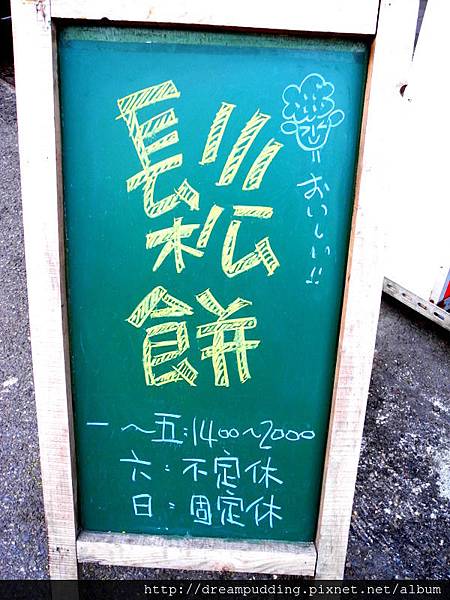 鬆餅
おいしい!!
一～五:1400～2000
六:不定休
日:固定休
http://dreampudding.pixnet.net/album